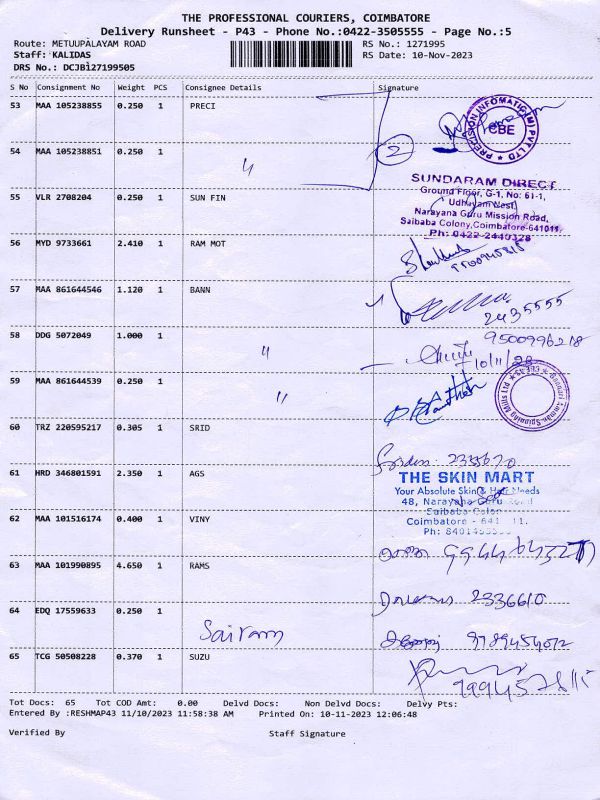 THE PROFESSIONAL COURIERS, COIMBATORE
Delivery Runsheet - P43 - Phone No.:0422-3505555 - Page No.:5
Route: METUUPALAYAM ROAD RS No.: 1271995
Staff: KALIDAS RS Date: 10-Nov-2023
DRS No.: DCJB127199505
S No Consignment No Weight PCS Consignee Details Signature
53 MAA 105238855 0.250 1 PRECI
PRECISION INFOMATIC (M) PVT LTD
CBE
54 MAA 105238851 0.250 1 〃 2
SUNDARAM DIRECT
55 VLR 2708204 0.250 1 SUN FIN Ground Floor, G-1, No: 61-1,
Udhayam West,
Narayana Guru Mission Road,
Saibaba Colony, Coimbatore-641011.
Ph: 0422-2440328
56 MYD 9733661 2.410 1 RAM MOT
57 MAA 861644546 1.120 1 BANN
2435555
58 DDG 5072049 1.000 1 〃 9500996218
10/11/23
59 MAA 861644539 0.250 1 〃
60 TRZ 220595217 0.305 1 SRID
61 HRD 346801591 2.350 1 AGS THE SKIN MART
Your Absolute Skin & Hair Needs
48, Narayana Guru Road
Saibaba Colony
Coimbatore - 641 11.
62 MAA 101516174 0.400 1 VINY
63 MAA 101990895 4.650 1 RAMS
2336610
64 EDQ 17559633 0.250 1 Sairam
65 TCG 50508228 0.370 1 SUZU
Tot Docs: 65 Tot COD Amt: 0.00 Delvd Docs: Non Delvd Docs: Delvy Pts:
Entered By :RESHMAP43 11/10/2023 11:58:38 AM Printed On: 10-11-2023 12:06:48
Verified By Staff Signature